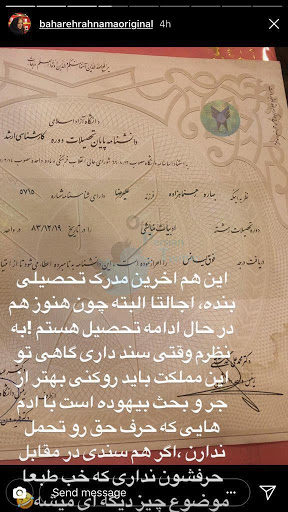 baharehrahnamaoriginal 4h
دانشگاه آزاد اسلامی
دانشنامه پایان تحصیلات دوره کارشناسی ارشد
نظر باینکه بهاره فرزند علیرضا دارای شناسنامه شماره ۵۷۱۵
دوره تحصیلات رشته ادبیات نمایشی را در تاریخ ۸۳/۱۲/۱۹
دریافت درجه فوق لیسانس را
این هم اخرین مدرک تحصیلی
بنده، اجالتا البته چون هنوز هم
در حال ادامه تحصیل هستم !به
نظرم وقتی سند داری گاهی تو
این مملکت باید روکنی بهتر از
جر و بحث بیهوده است با ادم
هایی که حرف حق رو تحمل
ندارن ،اگر هم سندی در مقابل
حرفشون نداری که خب طبعا
موضوع چیز دیگه ای میشه
Send message